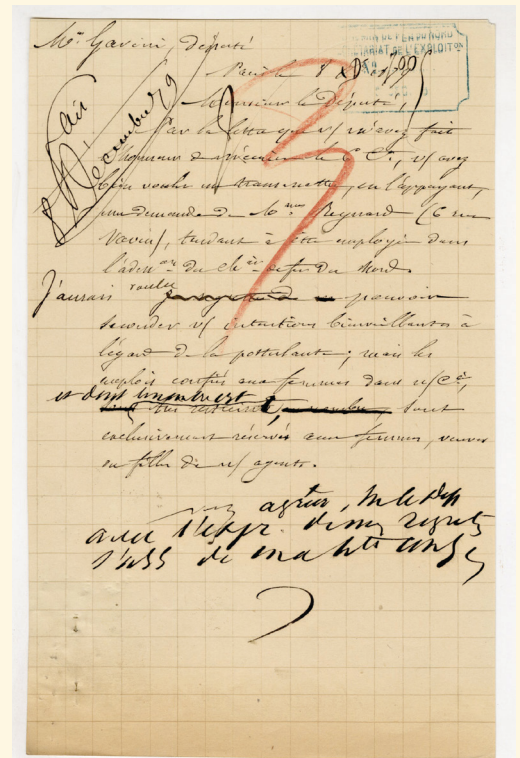 Mr Gavini, député
CHEMIN DE FER DU NORD
SECRÉTARIAT DE L'EXPLOITON
Paris le 8 Xbre
Fait
8 Décembre 79
Monsieur le député,
Par la lettre que v/ m'avez fait
l'honneur de m'écrire le 6 Ct, v/ avez
bien voulu me transmettre, en l'appuyant,
une demande de Mme Reynard (6 rue
Vavin), tendant à être employée dans
l'admon du ch. de fer du Nord.
J'aurais voulu pouvoir
seconder v/ intentions bienveillantes à
l'égard de la postulante; mais les
emplois confiés aux femmes dans n/ Cie,
et dont le nombre est
très restreint, sont
exclusivement réservés aux femmes, veuves
ou filles de n/ agents.
agréer, M. le Dép
avec l'expr. de mes regrets
l'ass de ma hte cons